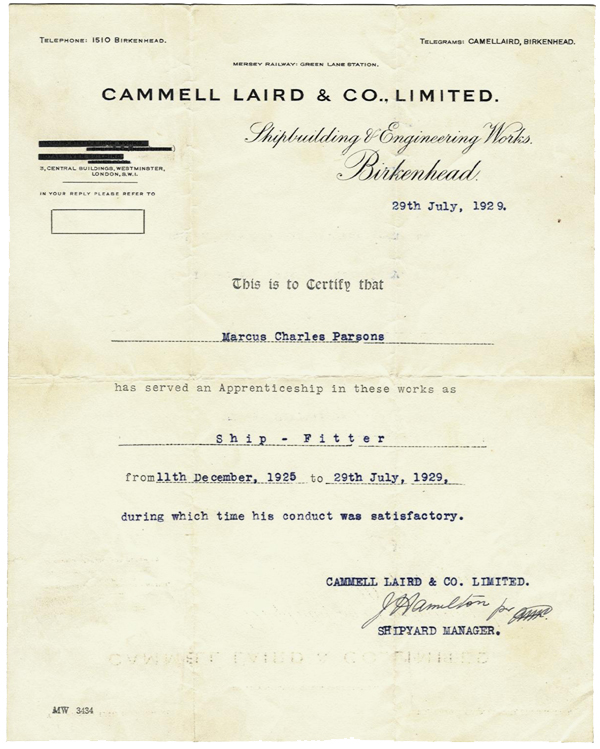 TELEPHONE: 1510 BIRKENHEAD.
TELEGRAMS: CAMELLAIRD, BIRKENHEAD.
MERSEY RAILWAY: GREEN LANE STATION.
CAMMELL LAIRD & CO., LIMITED.
Shipbuilding & Engineering Works.
Birkenhead.
3, CENTRAL BUILDINGS, WESTMINSTER,
LONDON, S.W.1.
IN YOUR REPLY PLEASE REFER TO
29th July, 1929.
This is to Certify that
Marcus Charles Parsons
has served an Apprenticeship in these works as
Ship - Fitter
from 11th December, 1925 to 29th July, 1929,
during which time his conduct was satisfactory.
CAMMELL LAIRD & CO. LIMITED.
J Hamilton per
SHIPYARD MANAGER.
MW 3434